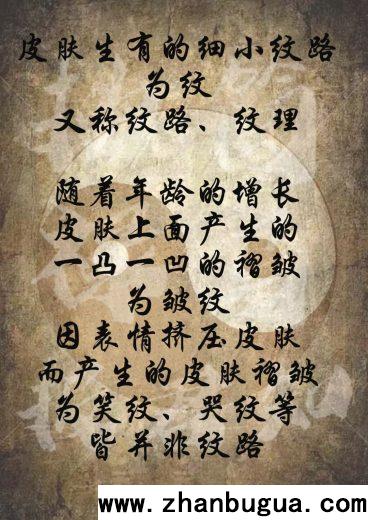 皮肤生有的细小纹路
为纹
又称纹路、纹理
随着年龄的增长
皮肤上面产生的
一凸一凹的褶皱
为皱纹
因表情挤压皮肤
而产生的皮肤褶皱
为笑纹、哭纹等
皆并非纹路
www.zhanbugua.com